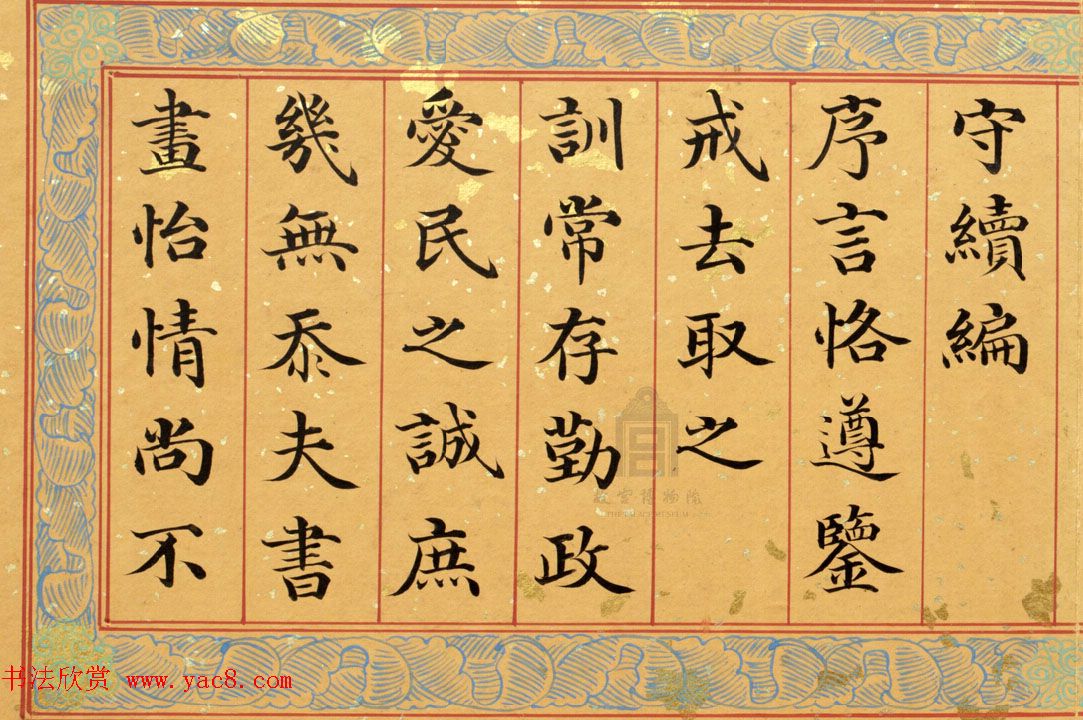 守續編
序言恪遵鑒
戒去取之
訓常存勤政
愛民之誠庶
幾無忝夫書
畫怡情尚不
故宮博物院
THE PALACE MUSEUM
书法欣赏 www.yac8.com